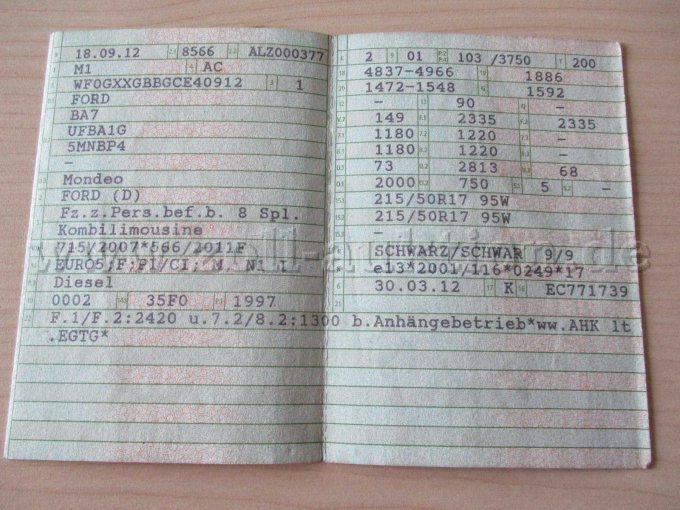 18.09.12 8566 ALZ000377
M1 AC
WF0GXXGBBGCE40912 1
FORD
BA7
UFBA1G
5MNBP4
–
Mondeo
FORD (D)
Fz.z.Pers.bef.b. 8 Spl.
Kombilimousine
715/2007*566/2011F
EURO5;F;PI/CI; M, N1 I
Diesel
0002 35F0 1997
F.1/F.2:2420 u.7.2/8.2:1300 b.Anhängebetrieb*ww.AHK lt
.EGTG*
2 01 103 /3750 200
4837-4966 1886
1472-1548 1592
– 90 –
149 2335 2335
1180 1220 –
1180 1220 –
73 2813 68
2000 750 5 –
215/50R17 95W
215/50R17 95W
SCHWARZ/SCHWAR 9/9
e13*2001/116*0249*17
30.03.12 K EC771739